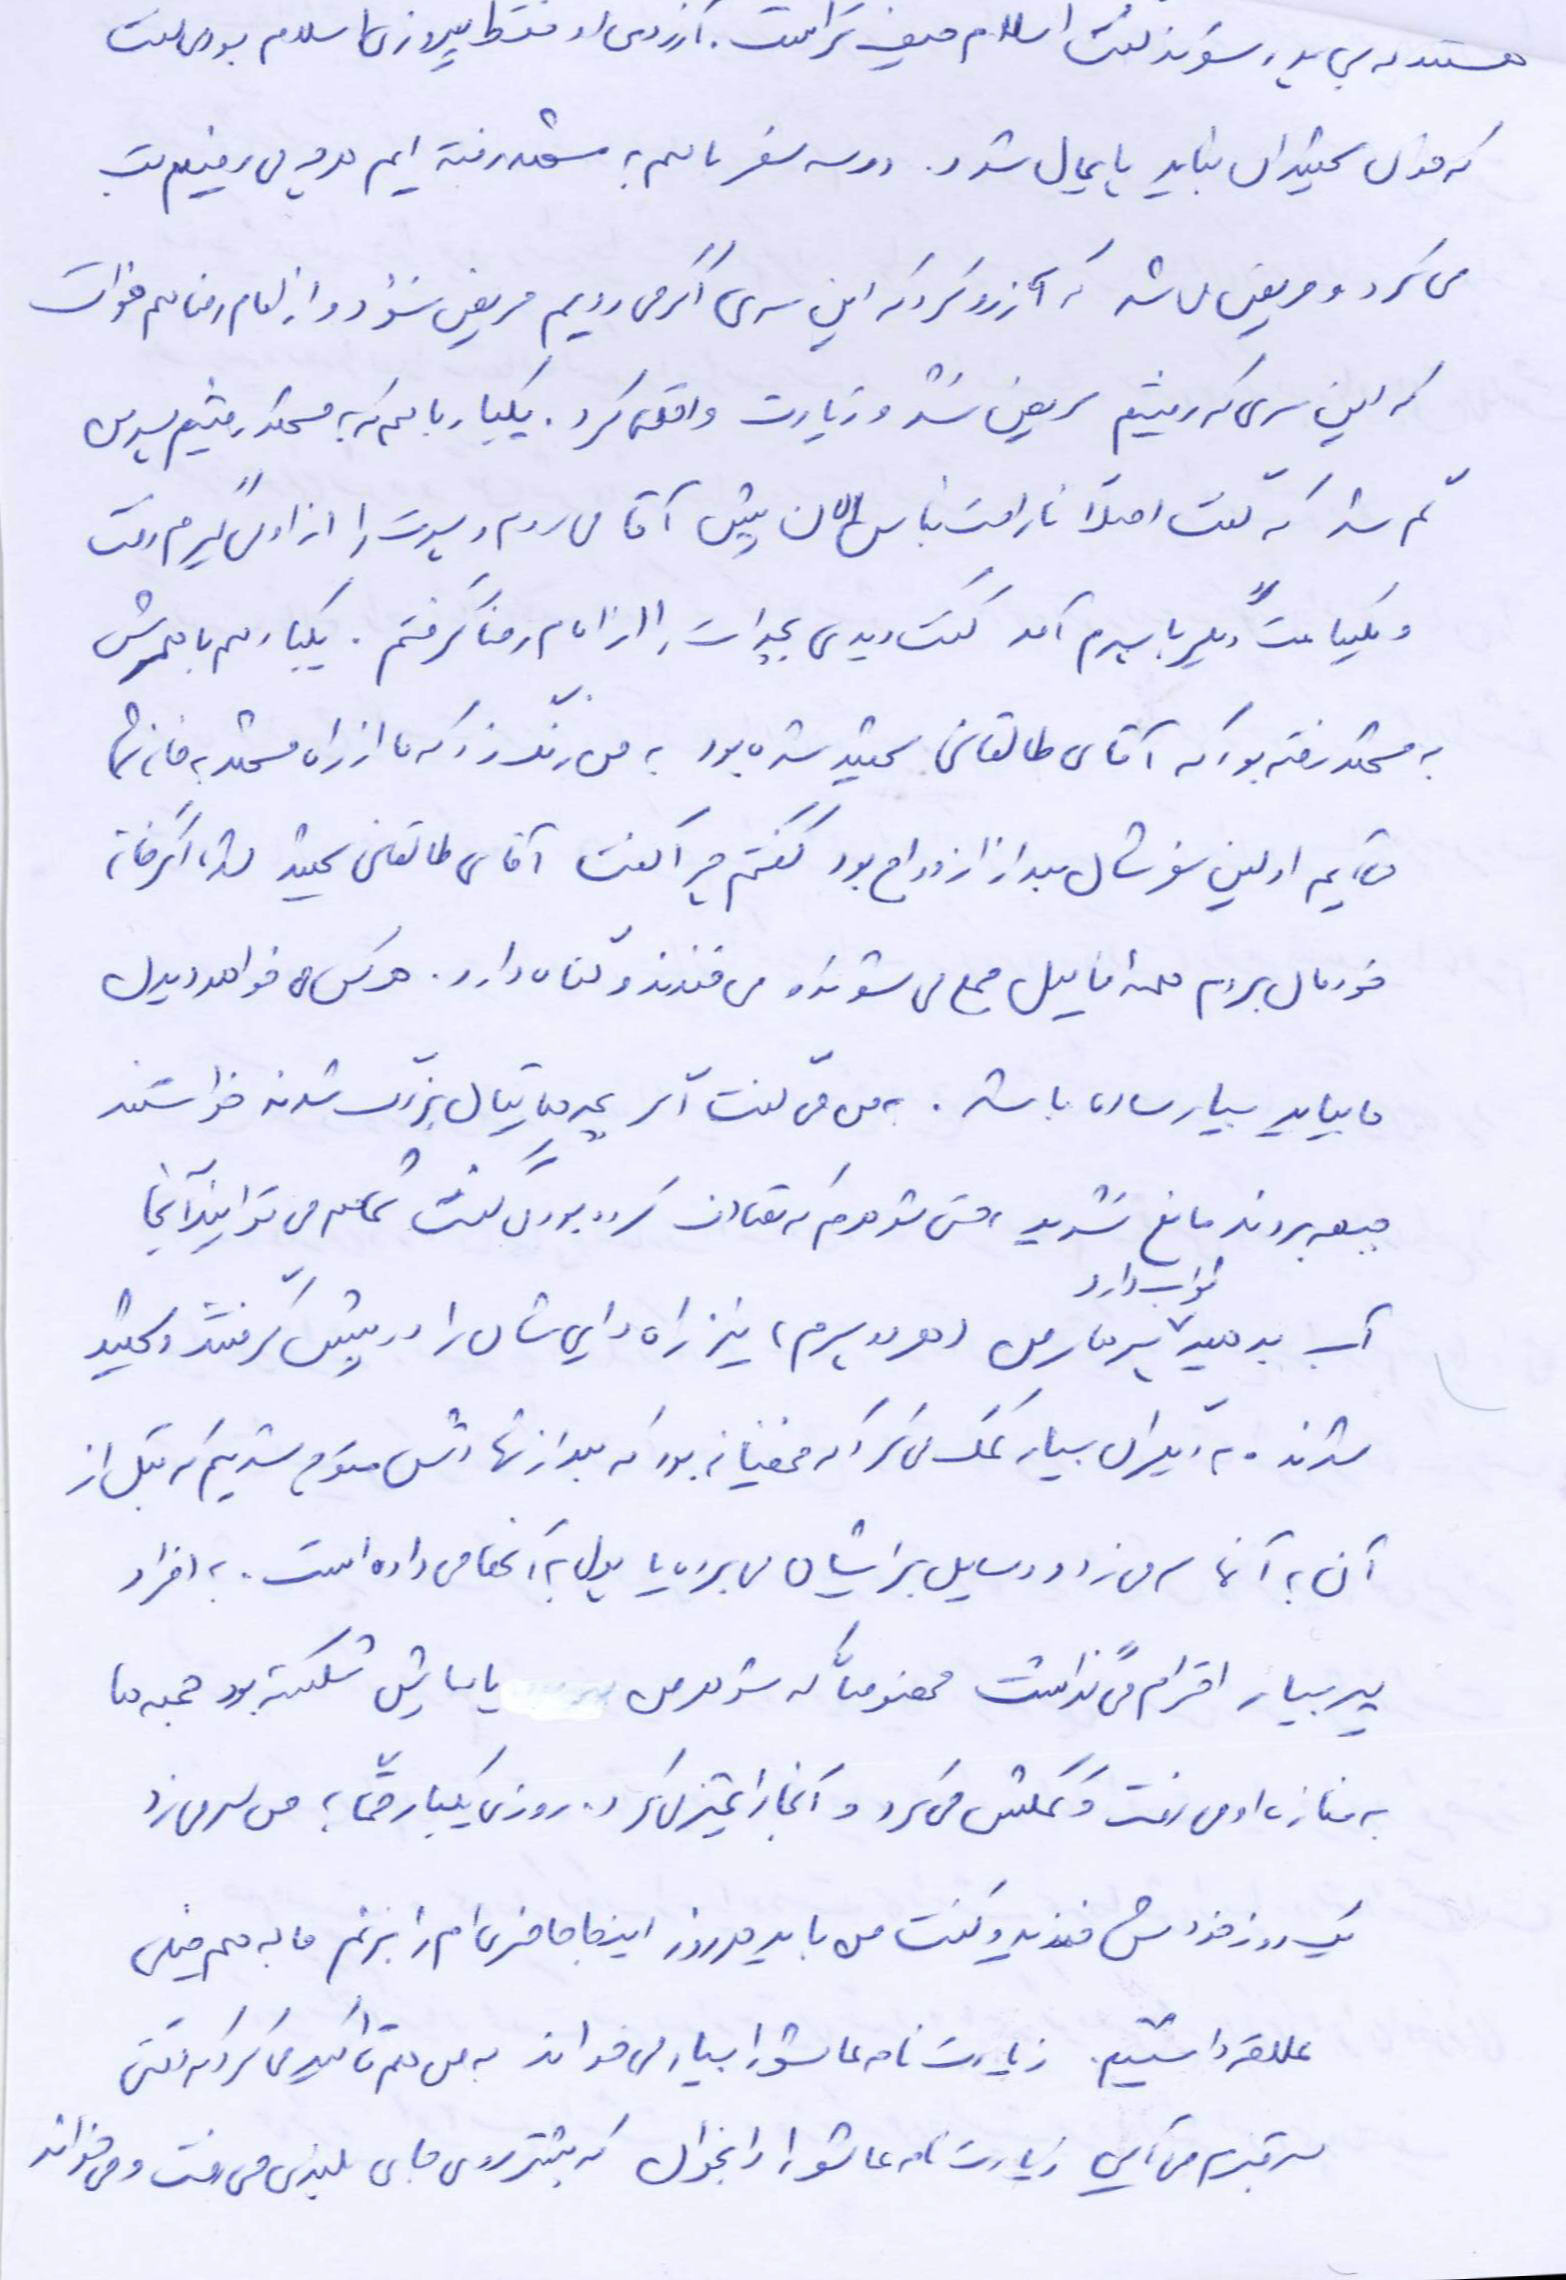 هستند که بی پدر شوند گفت اسلام عزیز تر است. آرزوی او فقط پیروزی اسلام بود می گفت
که خون شهیدان نباید پایمال شود. دو سه سفر با هم به مشهد رفته ایم هر چه می رفتیم تب
می کرد و مریض می شد که آرزو کرد که این سری اگر می رویم مریض نشود و از امام رضا هم خواست
که این سری که رفتیم مریض نشد و زیارت واقعی کرد. یکبار با هم که به مشهد رفتیم پسرم
گم شد که گفت اصلاً ناراحت نباش الان پیش آقا می روم و پسرت را از او می گیرم رفت
و یکساعت دیگر با پسرم آمد گفت دیدی بچه ات را از امام رضا گرفتم. یکبار هم با همسرش
به مشهد رفته بود که آقای طالقانی شهید شده بود به من زنگ زد که ما از راه مشهد به خانه شما
می آییم اولین سفرشان بعد از ازدواج بود گفتم چرا گفت آقای طالقانی شهید شده اگر خانه
خودمان برویم همه فامیل جمع می شوند و می خندند و گناه دارد. هر کس می خواهد دیدن
ما بیاید بسیار ساده باشد. به من می گفت اگر بچه هایتان بزرگ شدند خواستند
جبهه بروند مانع نشوید، حتی شوهرم که تصادف کرده بود می گفت شما هم می توانید آنجا
آب بدهید ثواب دارد پسرهای من (هر دو پسرم) نیز راه دایی شان را در پیش گرفتند و شهید
شدند. به دیگران بسیار کمک می کرد که مخفیانه بود که بعد از شهادتش متوجه شدیم که قبل از
آن به آنها سر می زد و وسایل برایشان می برده یا پول به آنها می داده است. به افراد
پیر بسیار احترام می گذاشت مخصوصاً که شوهر من پاهایش شکسته بود جمعه ها
به مغازه او می رفت و کمکش می کرد و آنجا را تمیز می کرد. روزی یکبار حتماً به من سر می زد
یک روز خودش خندید و گفت من باید هر روز اینجا حاضری ام را بزنم ما به هم خیلی
علاقه داشتیم. زیارت نامه عاشورا بسیار می خواند به من هم تاکید می کرد که وقتی
سر قبرم می آیی زیارت نامه عاشورا را بخوان که بیشتر روی جای بلندی می رفت و می خواند